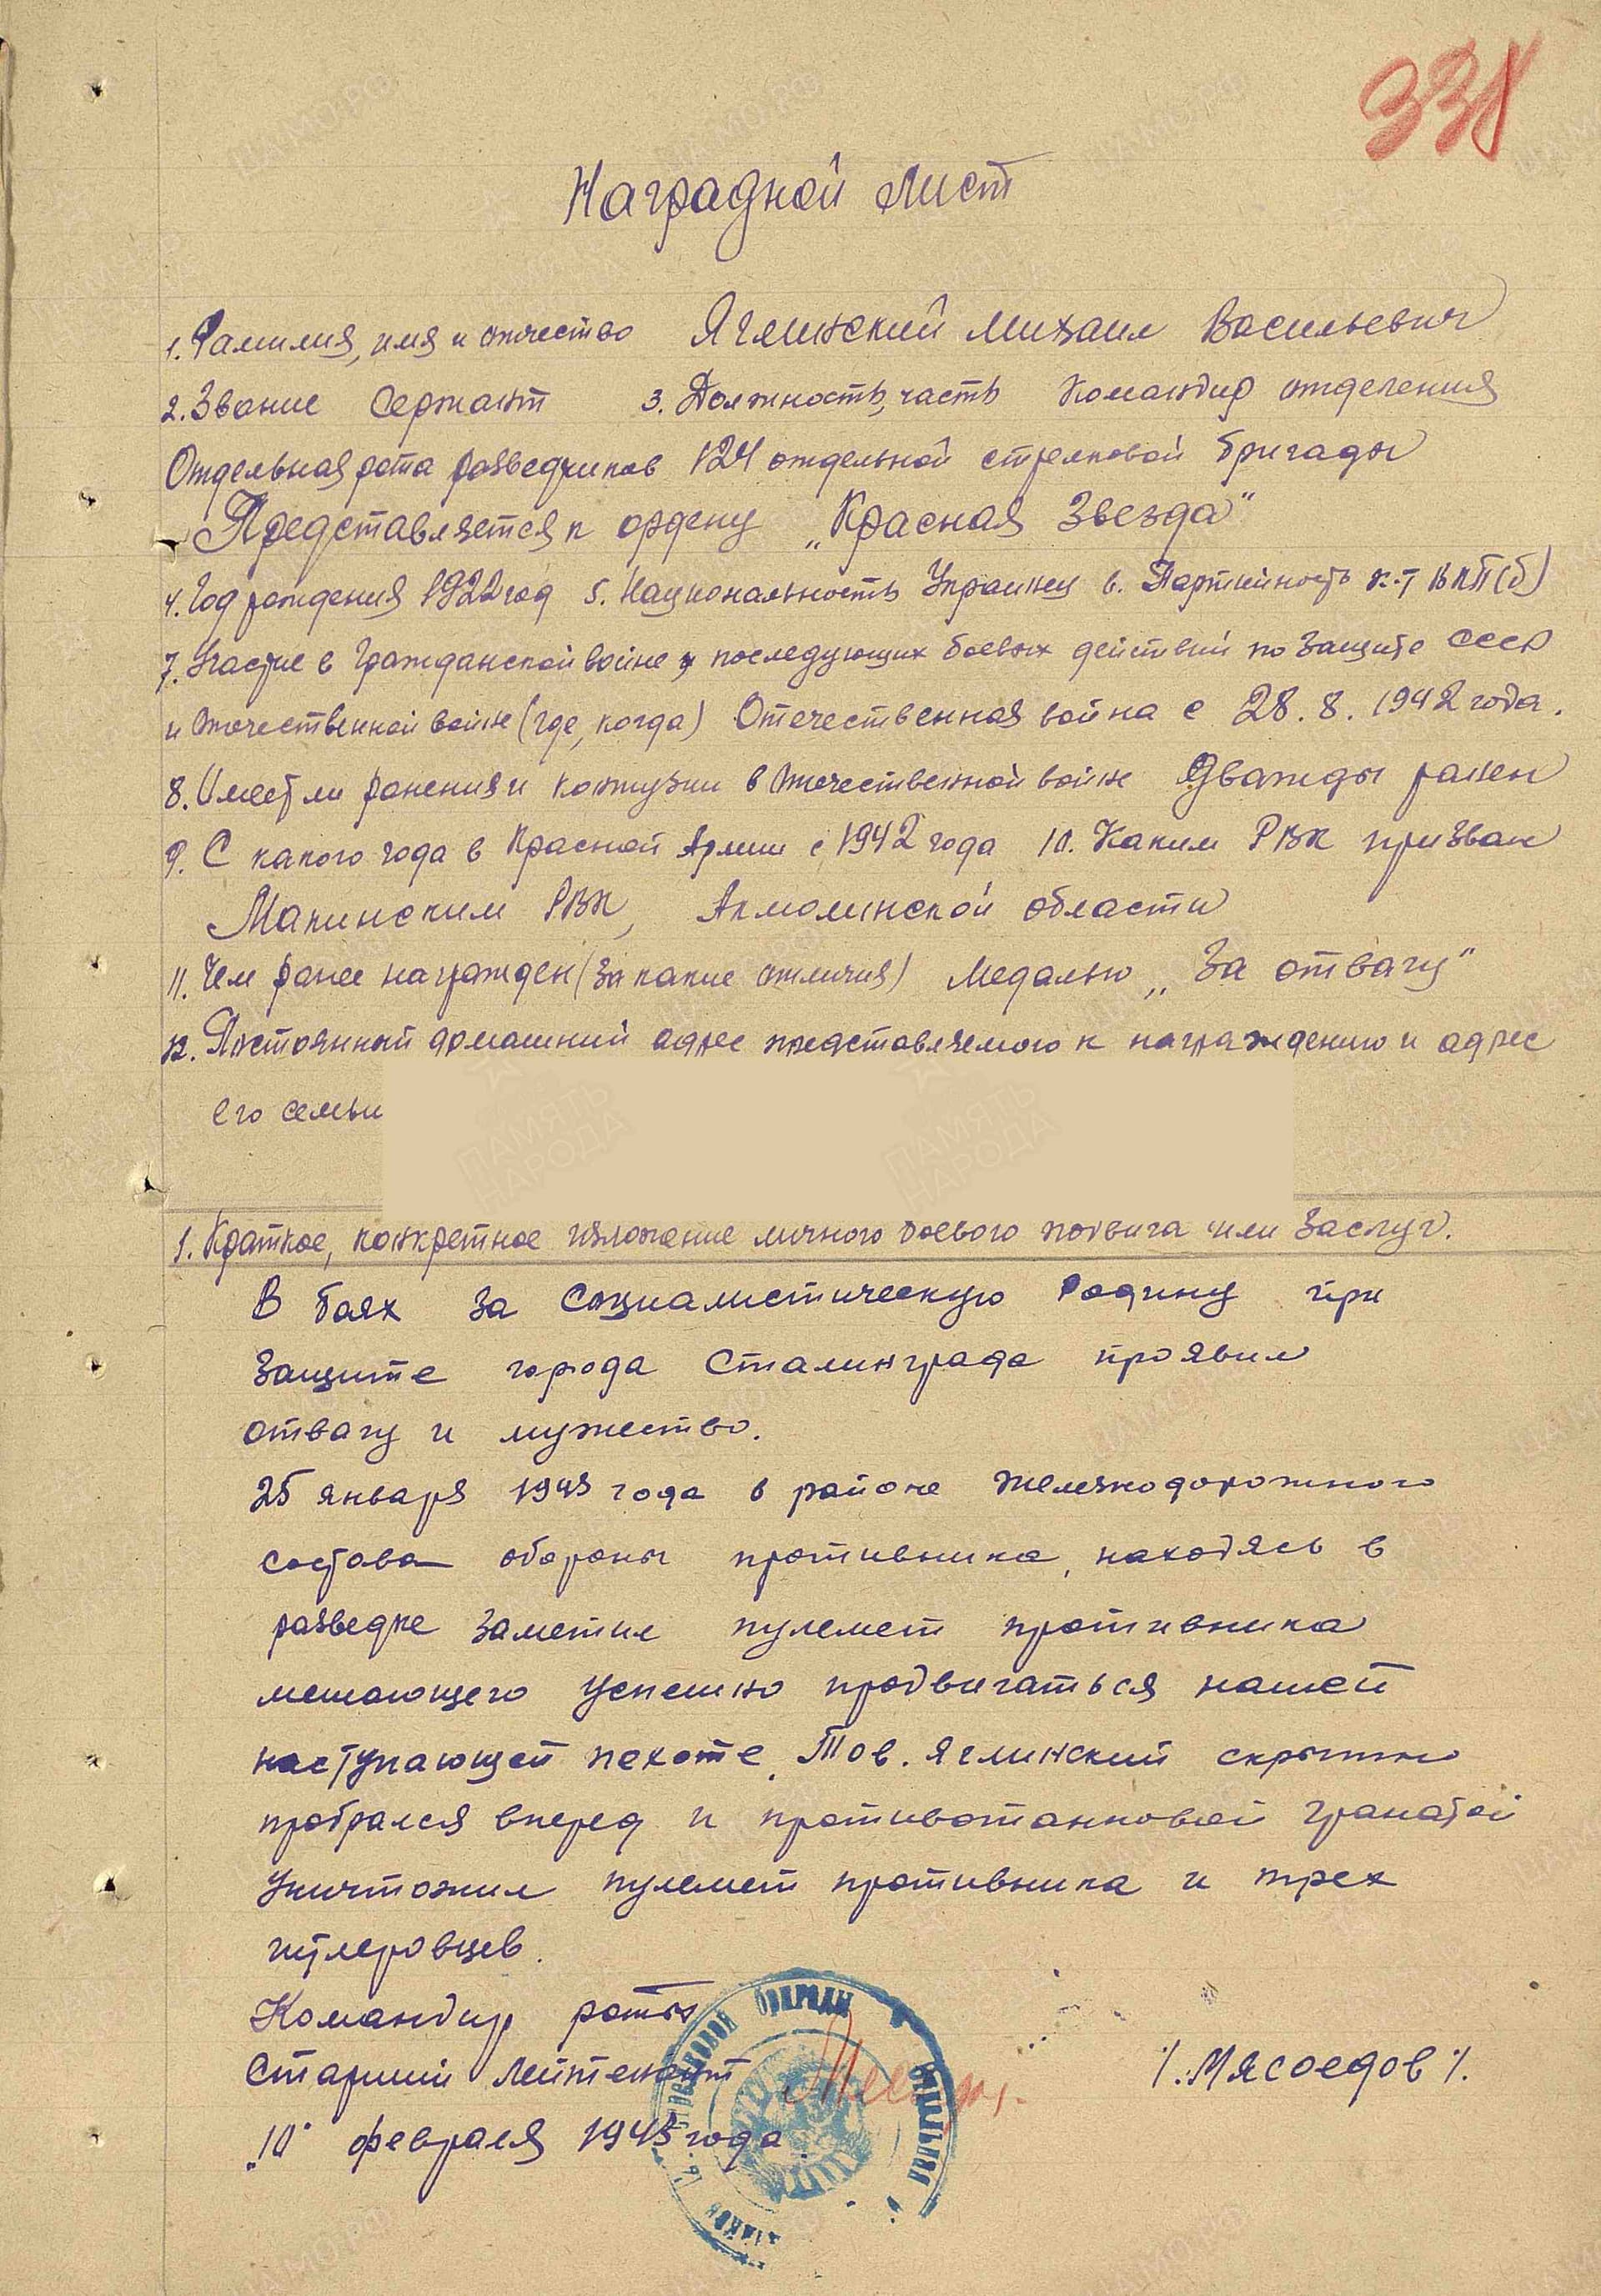 338
Наградной лист
1. Фамилия, имя и отчество Яглинский Михаил Васильевич
2. Звание Сержант 3. Должность, часть Командир отделения
Отдельная рота разведчиков 124 отдельной стрелковой бригады
Представляется к ордену „Красная Звезда"
4. Год рождения 1922 год 5. Национальность Украинец 6. Партийность к-т ВКП(б)
7. Участие в Гражданской войне, последующих боевых действий по защите СССР
и Отечественной войне (где, когда) Отечественная война с 28.8.1942 года.
8. Имеет ли ранения и контузии в Отечественной войне Дважды ранен
9. С какого года в Красной Армии с 1942 года 10. Каким РВК призван
Макинским РВК, Акмолинской области
11. Чем ранее награжден (за какие отличия) Медалью „За отвагу"
12. Постоянный домашний адрес представляемого к награждению и адрес
его семьи
ПАМЯТЬ НАРОДА
1. Краткое, конкретное изложение личного боевого подвига или заслуг.
В боях за Социалистическую Родину при
защите города Сталинграда проявил
отвагу и мужество.
25 января 1943 года в районе Железнодорожного
состава обороны противника, находясь в
разведке заметил пулемет противника
мешающего успешно продвигаться нашей
наступающей пехоте. Тов. Яглинский скрытно
пробрался вперед и противотанковой гранатой
уничтожил пулемет противника и трех
гитлеровцев.
Командир роты
Старший Лейтенант /. Мясоедов /.
„10" февраля 1943 года